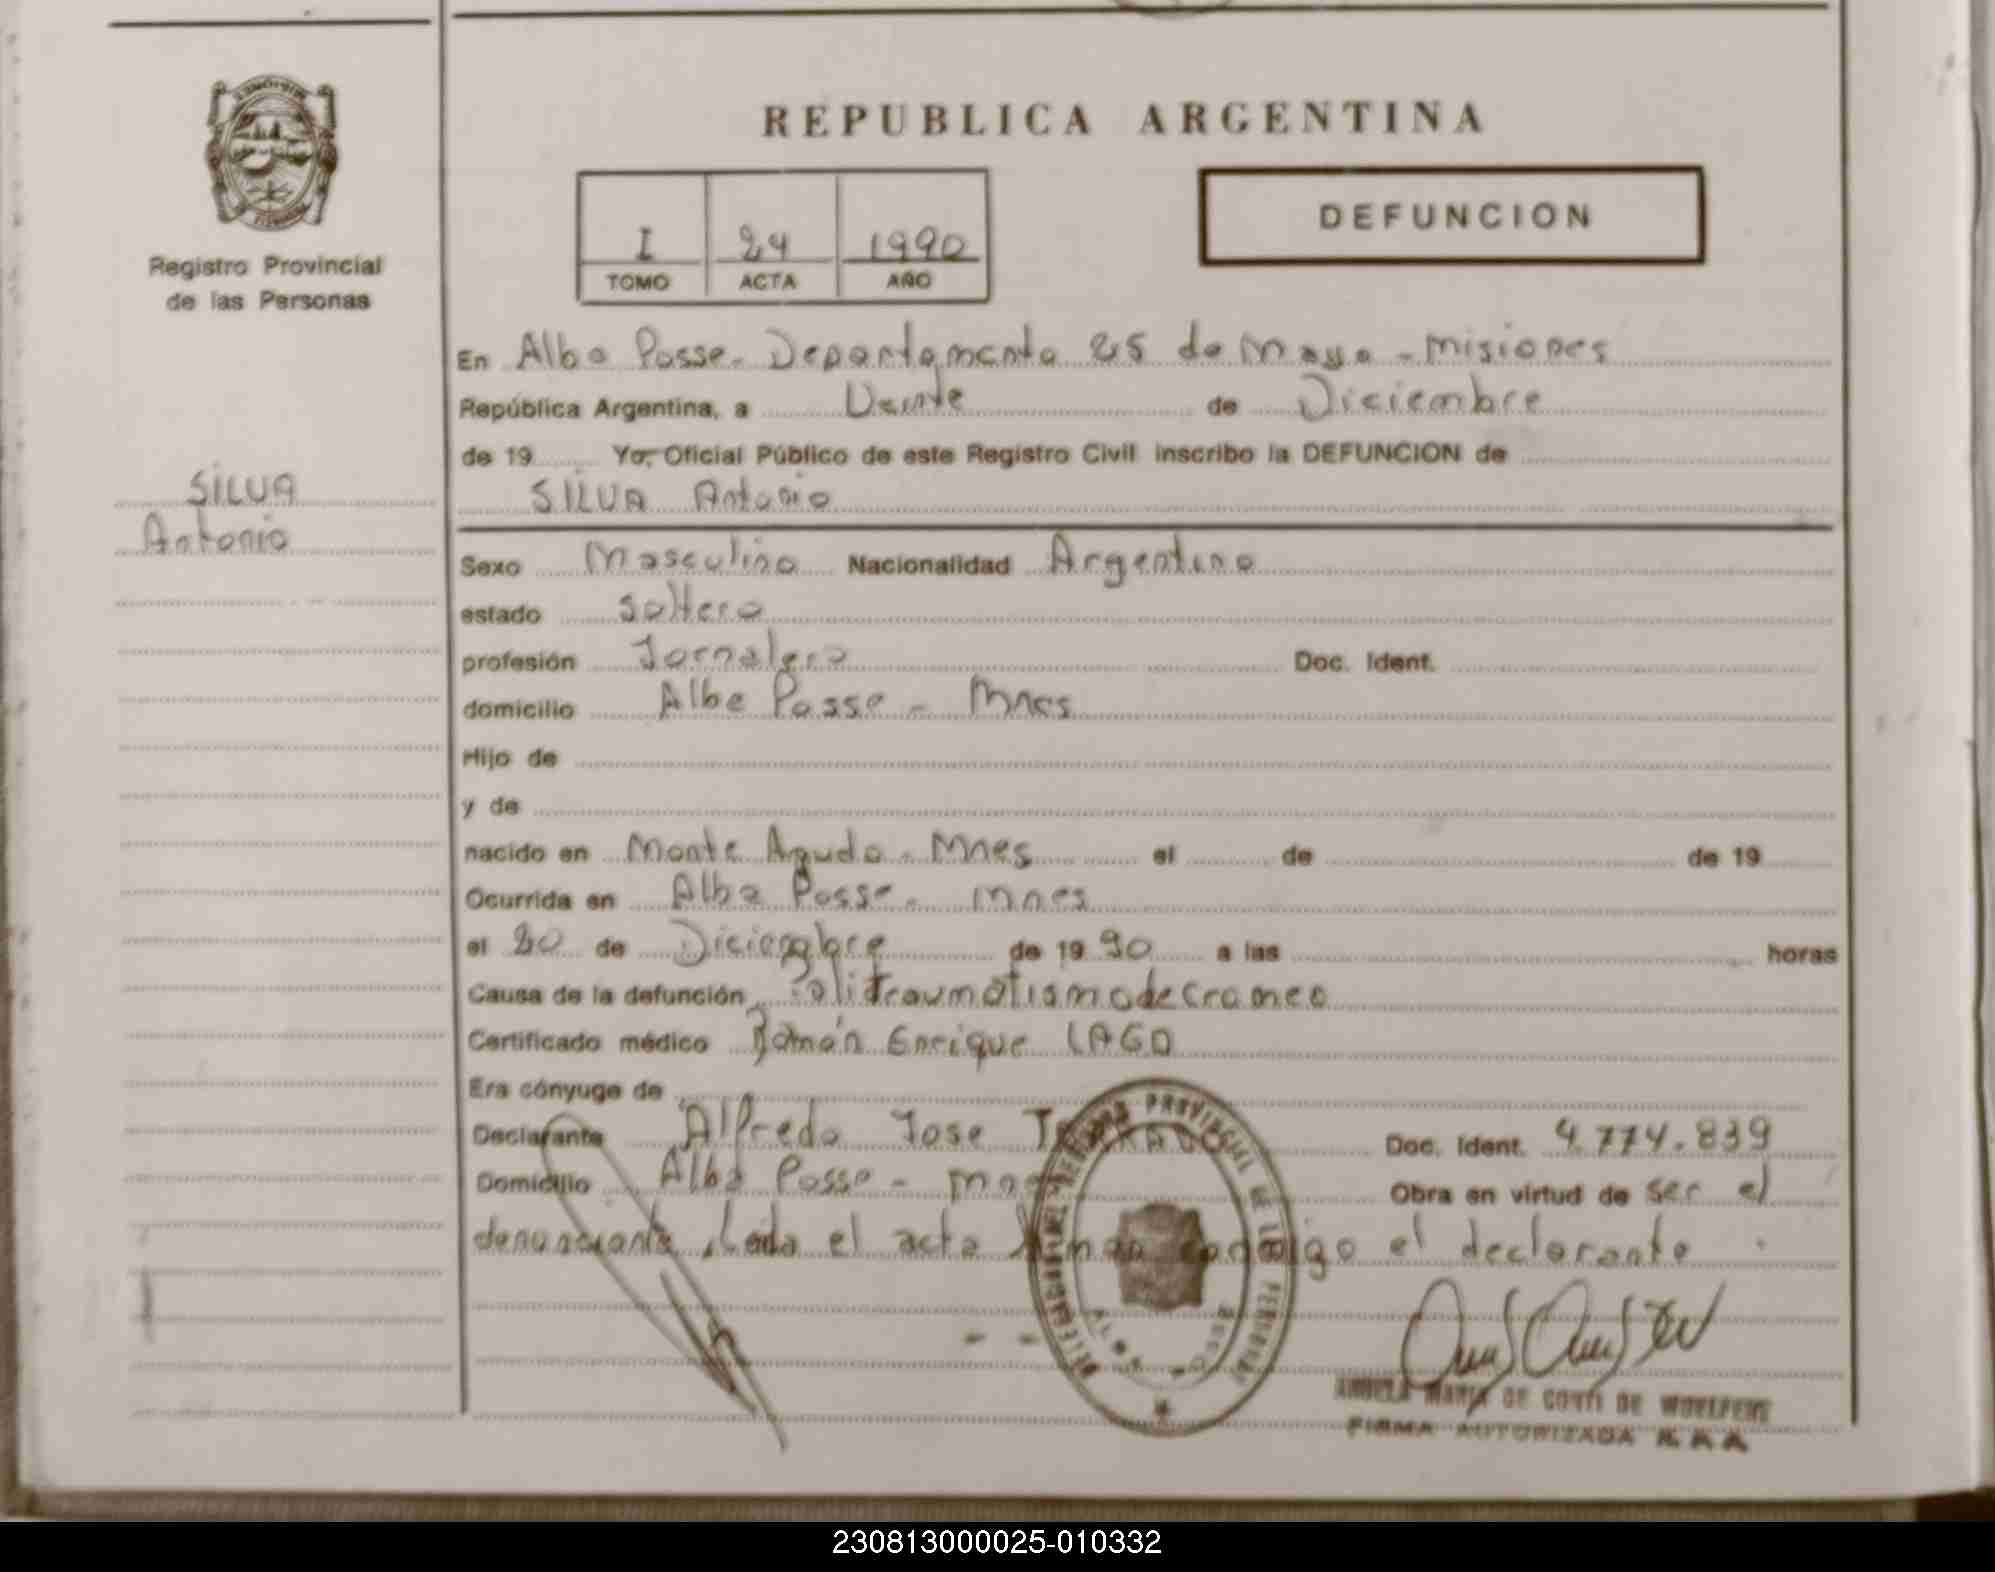 REPUBLICA ARGENTINA
Registro Provincial
de las Personas
I 24 1990
TOMO ACTA AÑO
DEFUNCION
SILVA
Antonio
En Alba Posse - Departamento 25 de Mayo - Misiones
República Argentina, a Veinte de Diciembre
de 19 Yo, Oficial Público de este Registro Civil inscribo la DEFUNCION de
SILVA Antonio
Sexo Masculino Nacionalidad Argentino
estado soltero
profesión Jornalero Doc. Ident.
domicilio Alba Posse - Mnes
Hijo de
y de
nacido en Monte Agudo - Mnes el de de 19
Ocurrida en Alba Posse - Mnes
el 20 de Diciembre de 19 90 a las horas
Causa de la defunción Politraumatismo de craneo
Certificado médico Ramón Enrique LAGO
Era cónyuge de
Declarante Alfredo Jose Doc. Ident. 4.774.839
Domicilio Alba Posse - Obra en virtud de ser el
denunciante, Leída el acta firman conmigo el declarante.
DELEGACION REGISTRO PROVINCIAL DE LAS PERSONAS
ALBA POSSE
MARIA DE CONTI DE
FIRMA AUTORIZADA
230813000025-010332